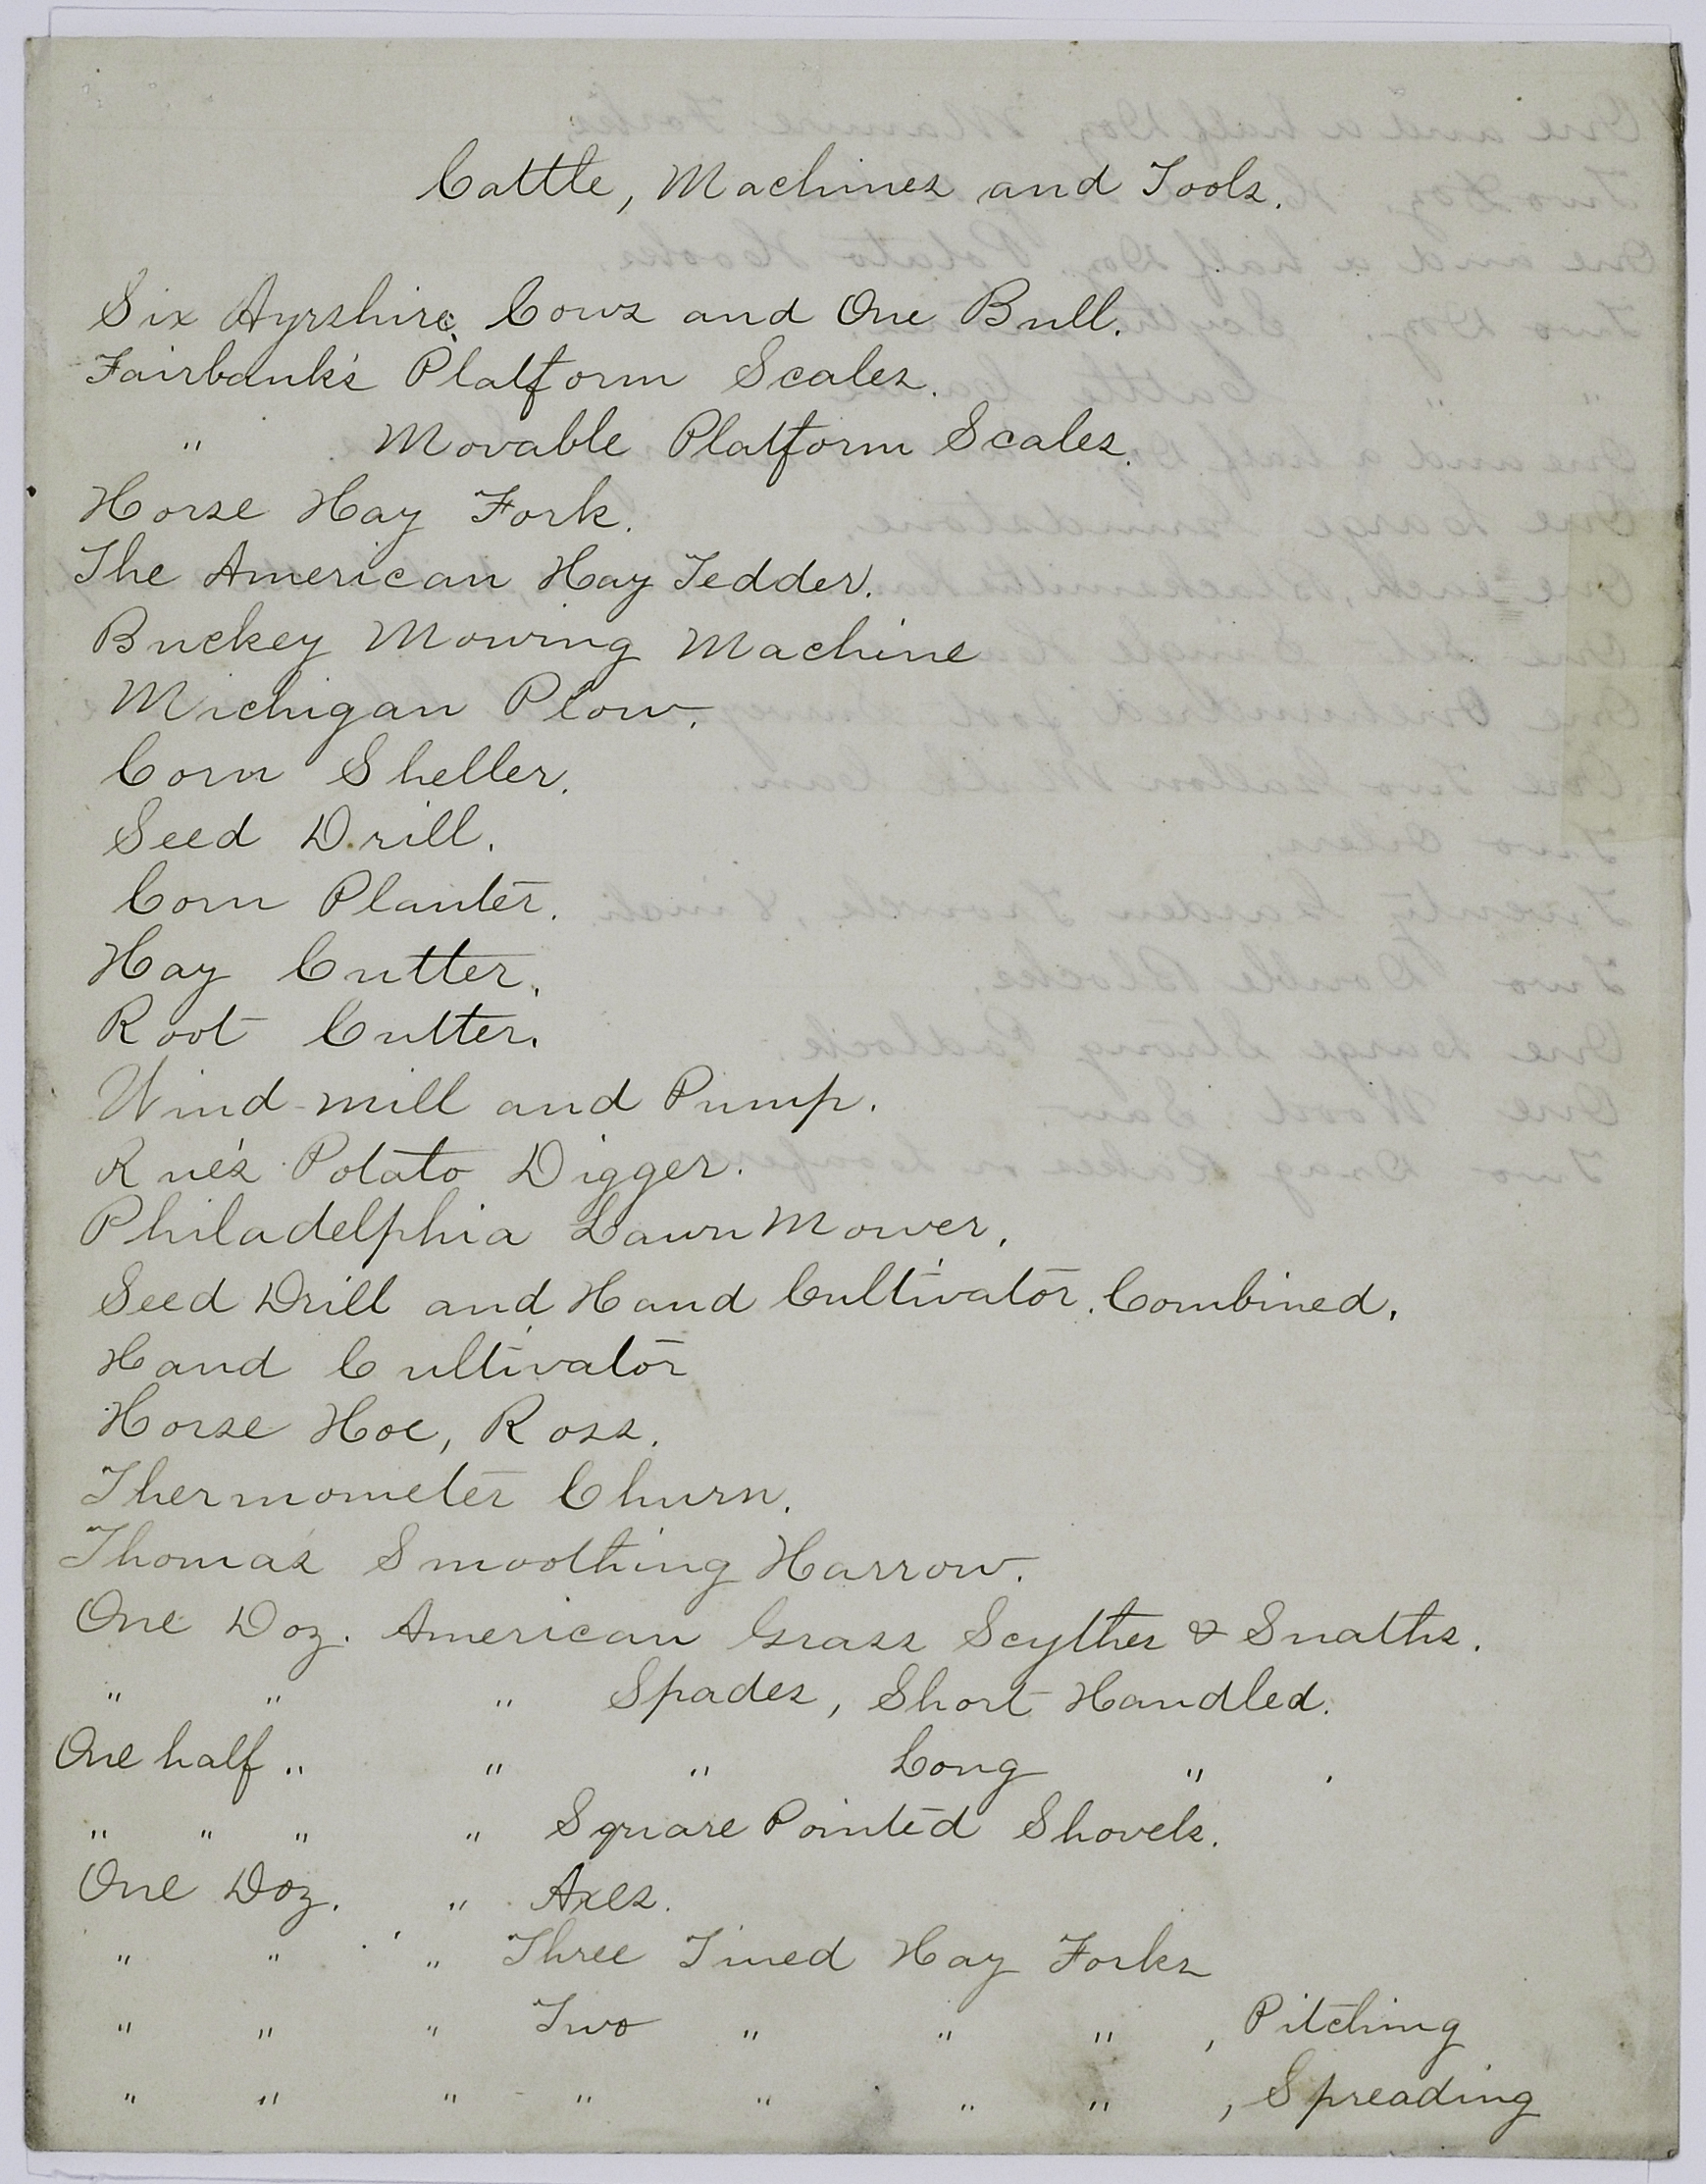 Cattle, Machines and Tools.
Six Ayrshire Cows and One Bull.
Fairbank's Platform Scales.
" Movable Platform Scales.
Horse Hay Fork.
The American Hay Tedder.
Buckey Mowing Machine
Michigan Plow.
Corn Sheller.
Seed Drill.
Corn Planter.
Hay Cutter.
Root Cutter.
Wind-mill and Pump.
Rue's Potato Digger.
Philadelphia Lawn Mower.
Seed Drill and Hand Cultivator Combined.
Hand Cultivator
Horse Hoe, Ross.
Thermometer Churn.
Thoma's Smoothing Harrow.
One Doz. American Grass Scythes & Snaths.
" " " Spades, Short Handled.
One half " " " Long " .
" " " " Square Pointed Shovels.
One Doz. " Axes.
" " " Three Tined Hay Forks
" " " Two " " " , Pitching
" " " " " " " , Spreading